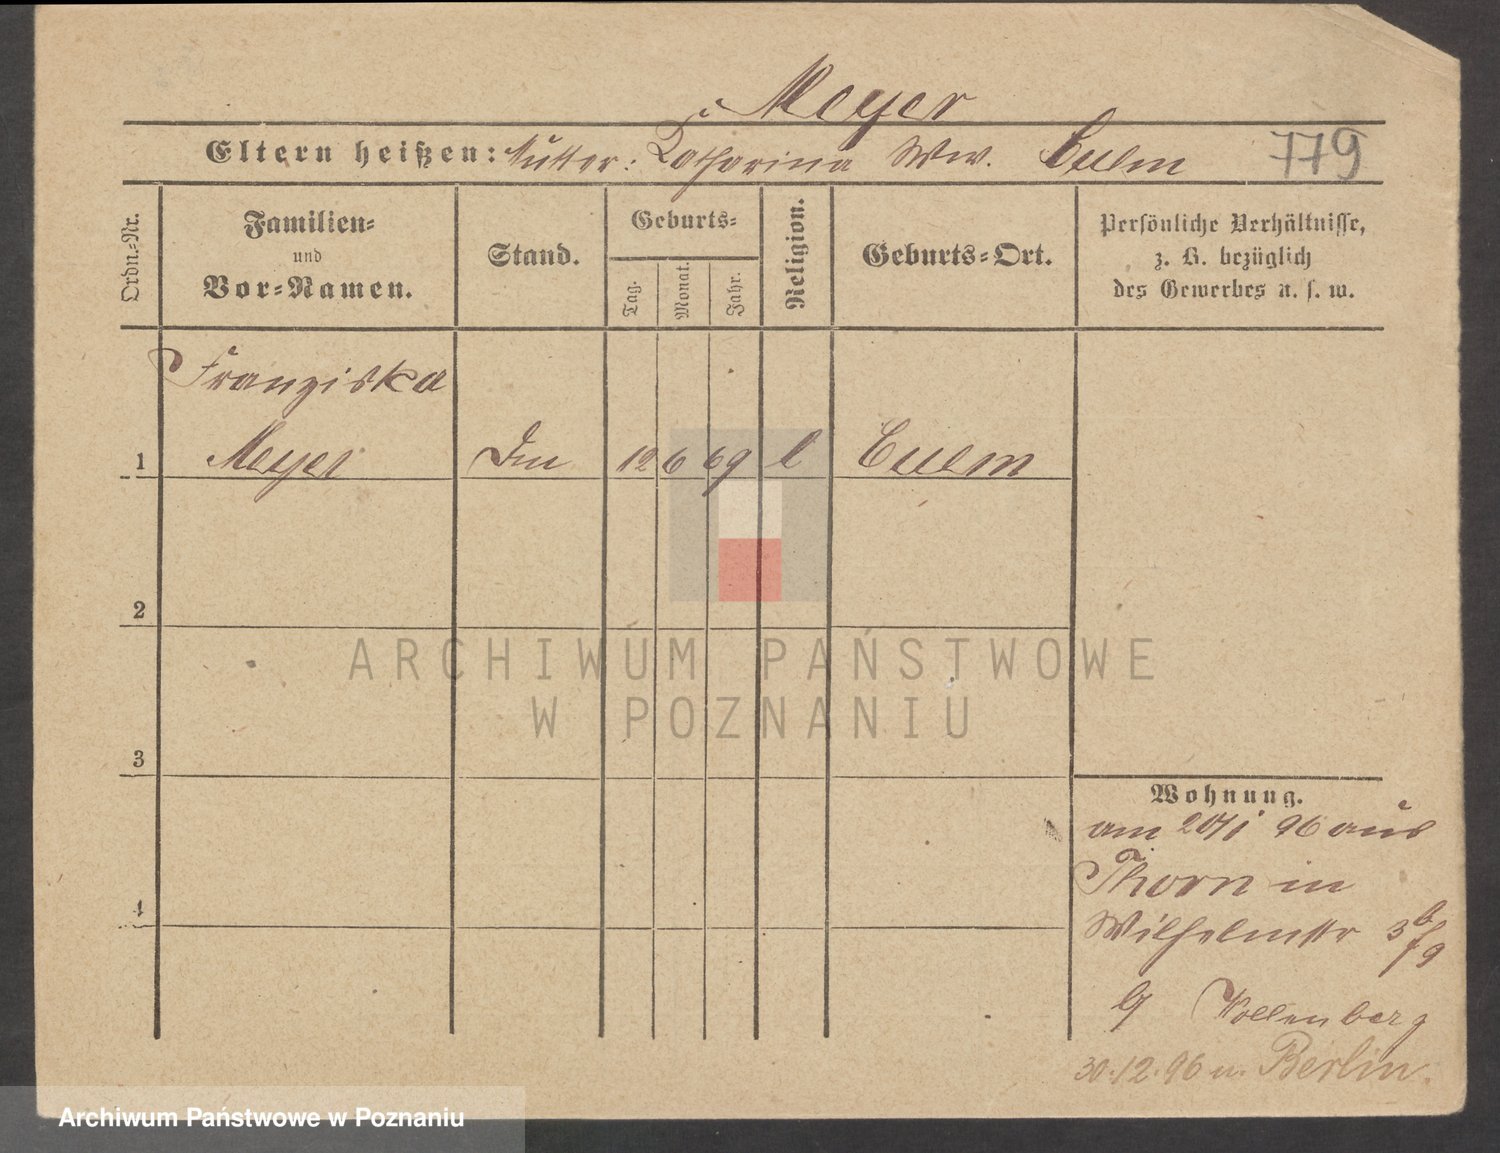 Meyer
Eltern heißen: Mutter: Katharina Ww. Culm 779
Ordn.-Nr.
Familien-
und
Vor-Namen.
Stand.
Geburts-
Tag.
Monat.
Jahr.
Religion.
Geburts-Ort.
Persönliche Verhältnisse,
z. B. bezüglich
des Gewerbes u. s. w.
Franziska
1 Meyer 12 6 69 Culm
2
3
4
ARCHIWUM PAŃSTWOWE
W POZNANIU
Wohnung.
am 20/1 96 aus
Thorn in
Wilhelmstr
b/ Wollenberg
30.12.96 n. Berlin.
Archiwum Państwowe w Poznaniu